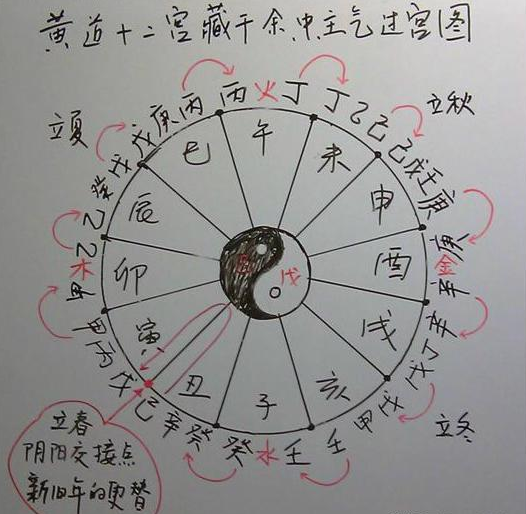 黄道十二宫藏干余中主气过宫图
立夏
立秋
立冬
丙火丁
丁乙己
己戊壬庚
庚金辛
辛丁戊
戊甲壬
壬水癸
癸辛己
戊丙甲
甲木乙
乙癸戊
戊庚丙
午
未
申
酉
戌
亥
子
丑
寅
卯
辰
巳
戊
立春
阴阳交接点
新旧年的更替